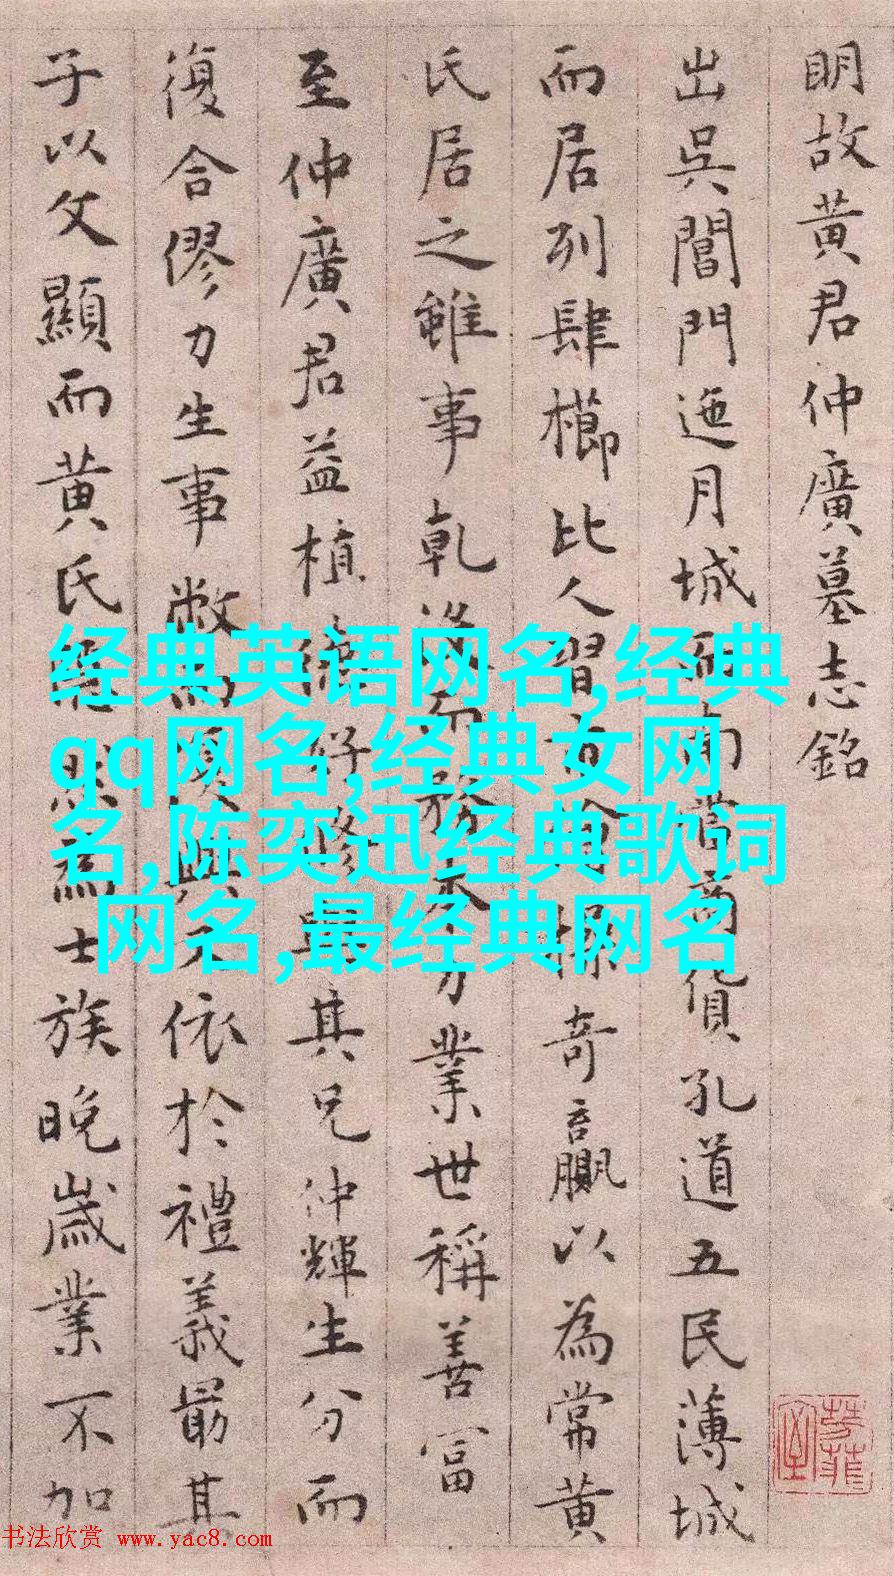 明故黄君仲廣墓志銘
出吳閶門迤月城而南當商貨孔道五民薄城
而居列肆櫛比人習市會操奇贏以為常黄
氏居之雖事乾没而務本力業世稱善富
至仲廣君益植德好修與其兄仲輝生分而
復合僇力生事
依於禮義最其
子以文顯而黄氏
為士族晚歲業不加
经典英语网名,经典
qq网名,经典女网
名,陈奕迅经典歌词
网名,最经典网名
书法欣赏 www.yac8.com